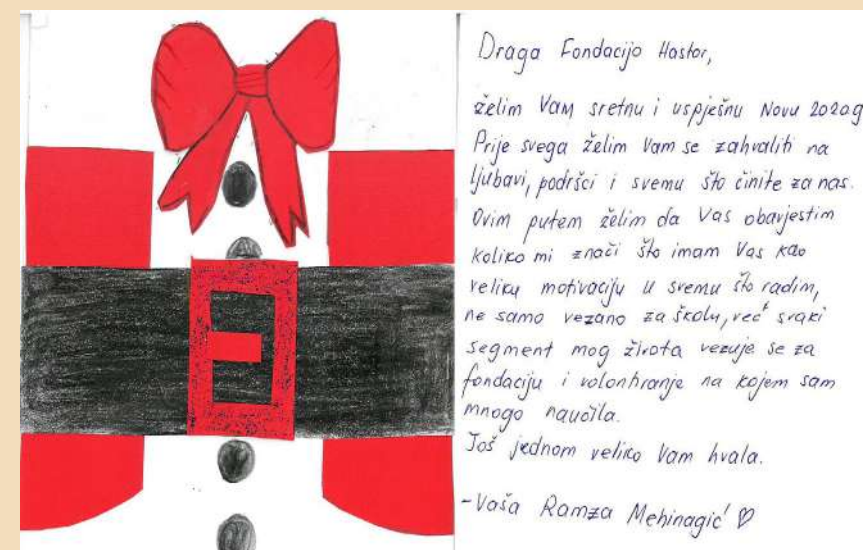 Draga Fondacijo Hastor,
želim Vam sretnu i uspješnu Novu 2020g
Prije svega želim Vam se zahvaliti na
ljubavi, podršci i svemu što činite za nas.
Ovim putem želim da Vas obavjestim
koliko mi znači što imam Vas kao
veliku motivaciju u svemu što radim,
ne samo vezano za školu, već svaki
segment mog života vezuje se za
fondaciju i volontiranje na kojem sam
mnogo naučila.
Još jednom veliko Vam hvala.
-Vaša Ramza Mehinagić ♡